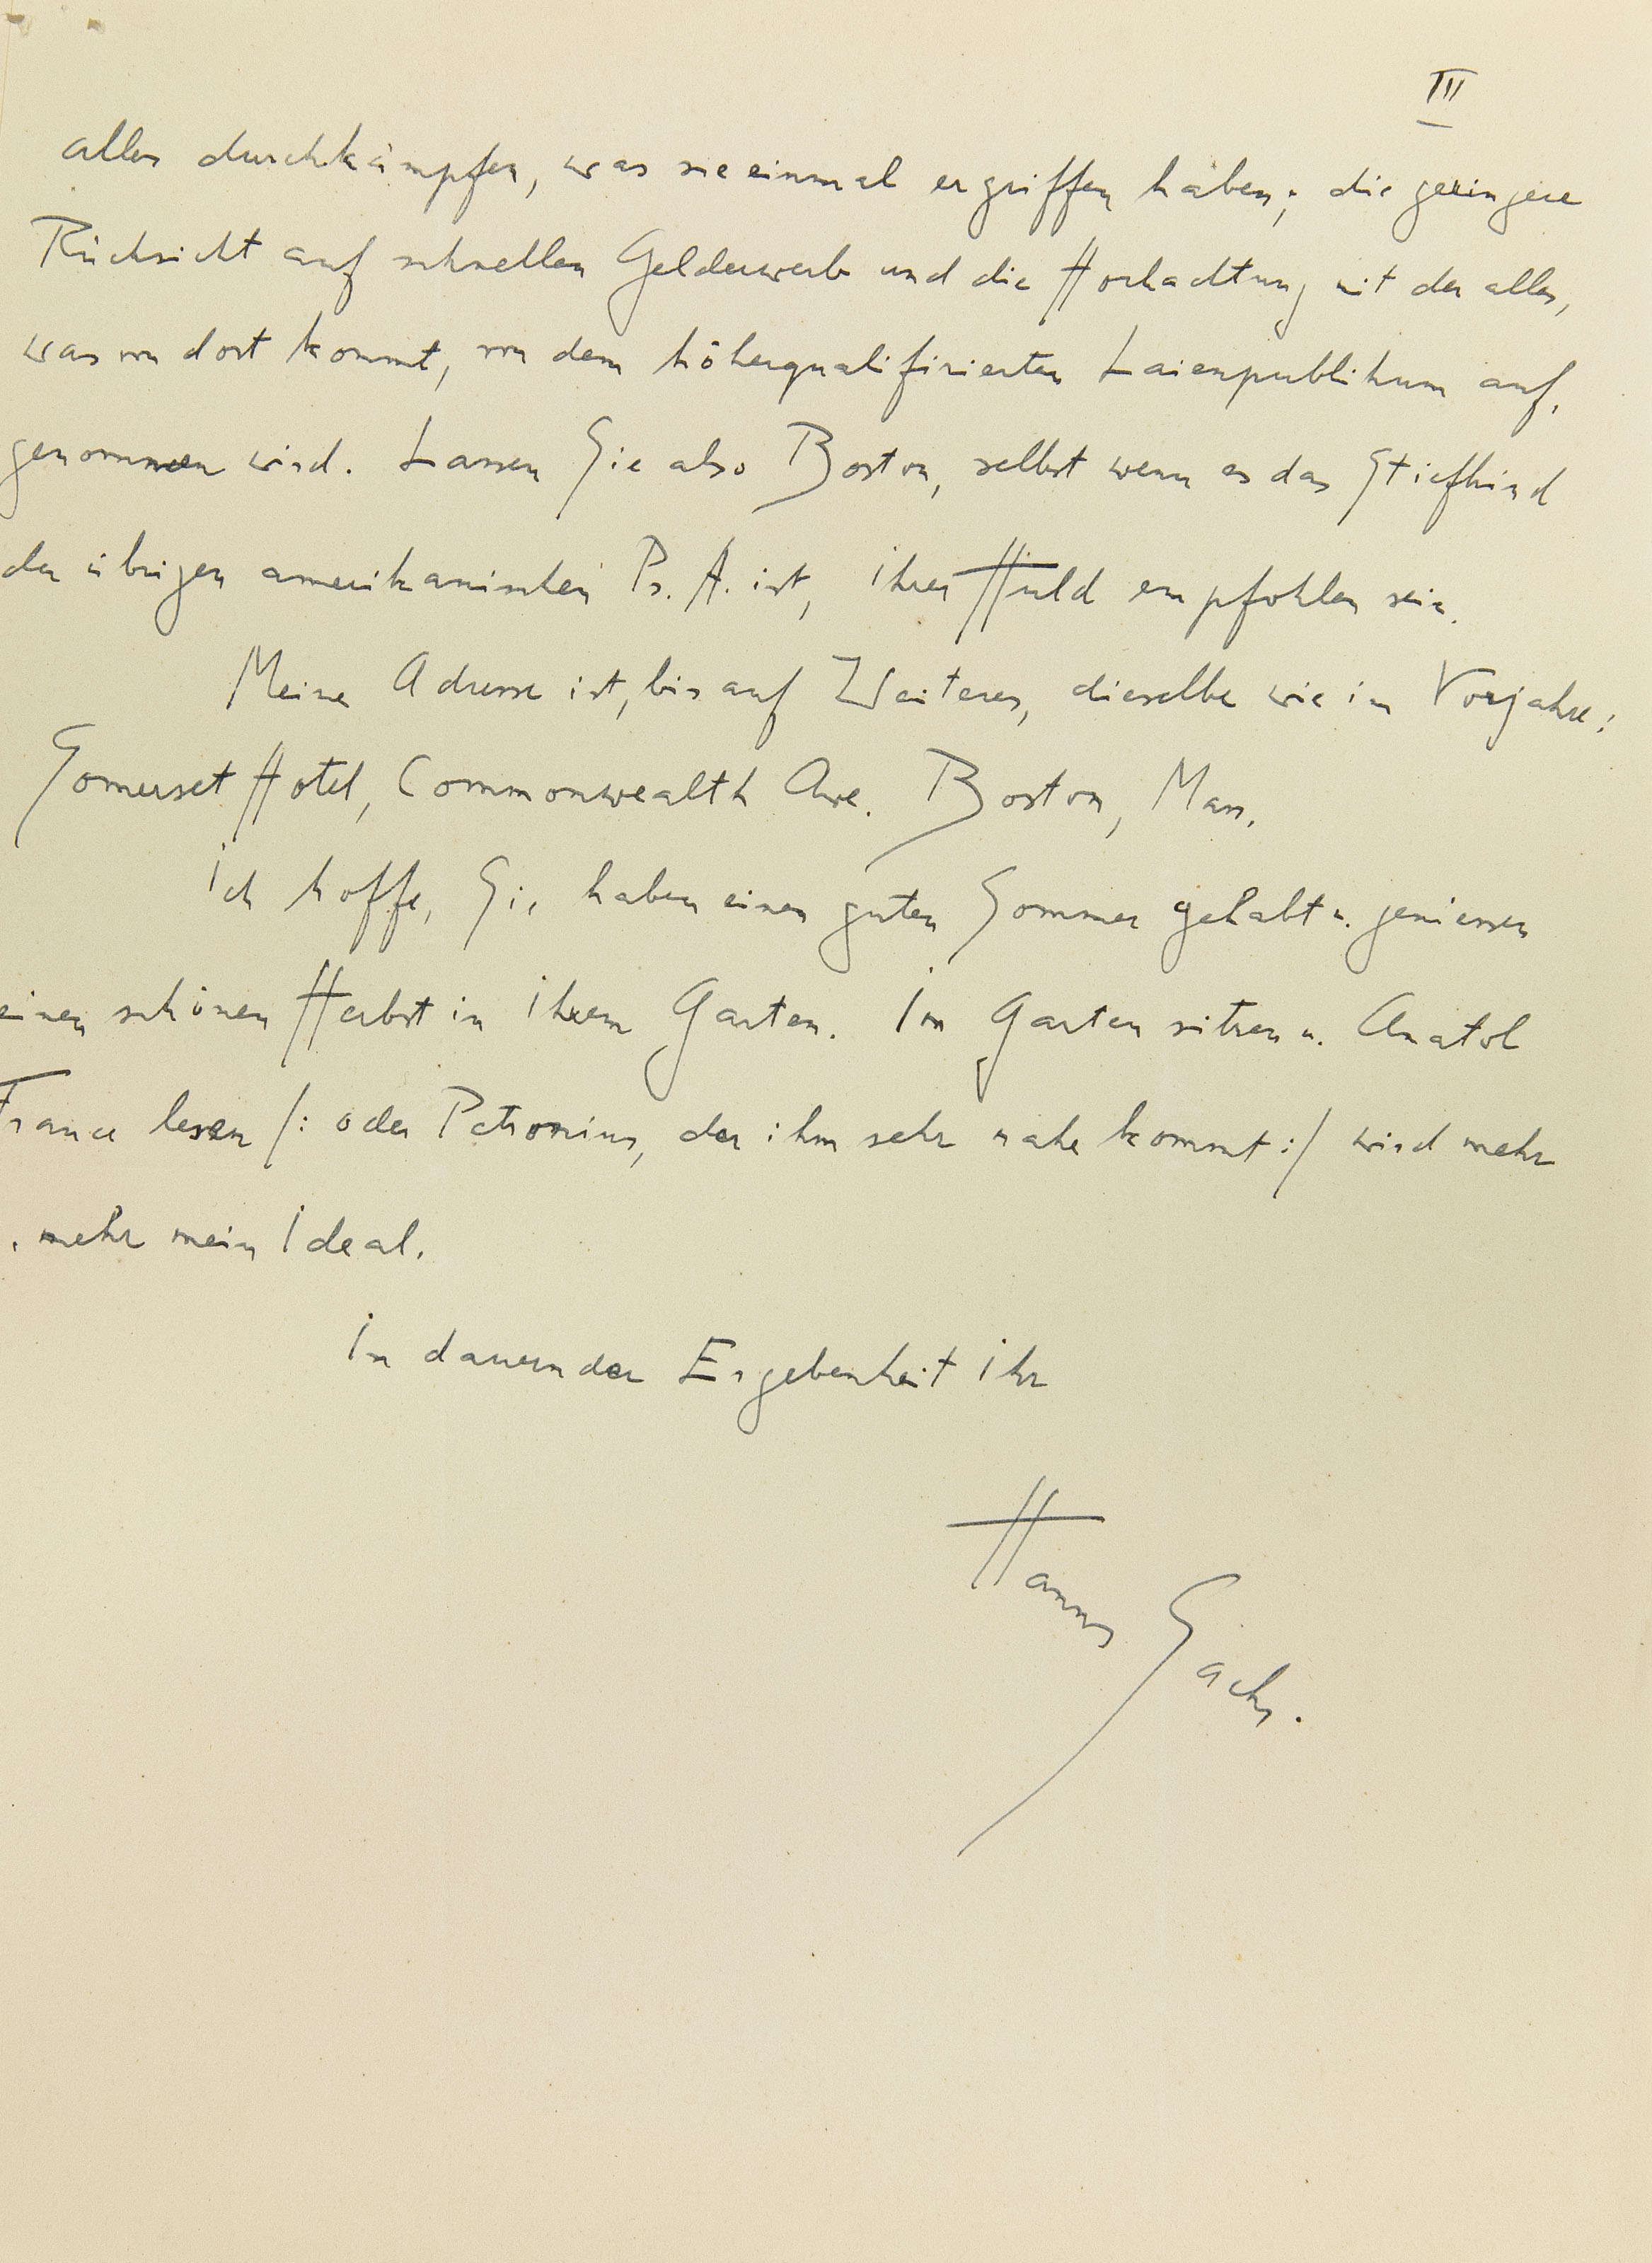 III
alles durchkämpfen, was sie einmal ergriffen haben; die geringere
Rücksicht auf schnellen Gelderwerb und die Hochachtung mit der alles,
was von dort kommt, von dem höherqualifizierten Laienpublikum auf-
genommen wird. Lassen Sie also Boston, selbst wenn es das Stiefkind
der übrigen amerikanischen Ps. A. ist, ihrer Huld empfohlen sein.
Meine Adresse ist, bis auf Weiteres, dieselbe wie im Vorjahre:
Somerset Hotel, Commonwealth Ave. Boston, Mass.
Ich hoffe, Sie haben einen guten Sommer gehabt u. geniessen
einen schönen Herbst in ihrem Garten. Im Garten sitzen u. Anatol
France lesen /: oder Petronius, der ihm sehr nahe kommt :/ wird mehr
u. mehr mein Ideal.
In dauernder Ergebenheit Ihr
Hanns Sachs.